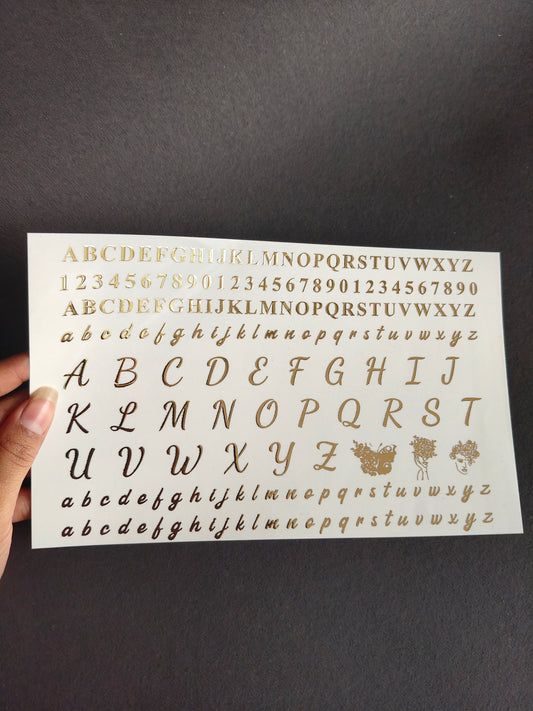 ABCDEFGHIJKLMNOPQRSTUVWXYZ
123456789012345678901234567890
ABCDEFGHIJKLMNOPQRSTUVWXYZ
abcdefghijklmnopqrstuvwxyz
A B C D E F G H I J
K L M N O P Q R S T
U V W X Y Z
abcdefghijklmnopqrstuvwxyz
abcdefghijklmnopqrstuvwxyz